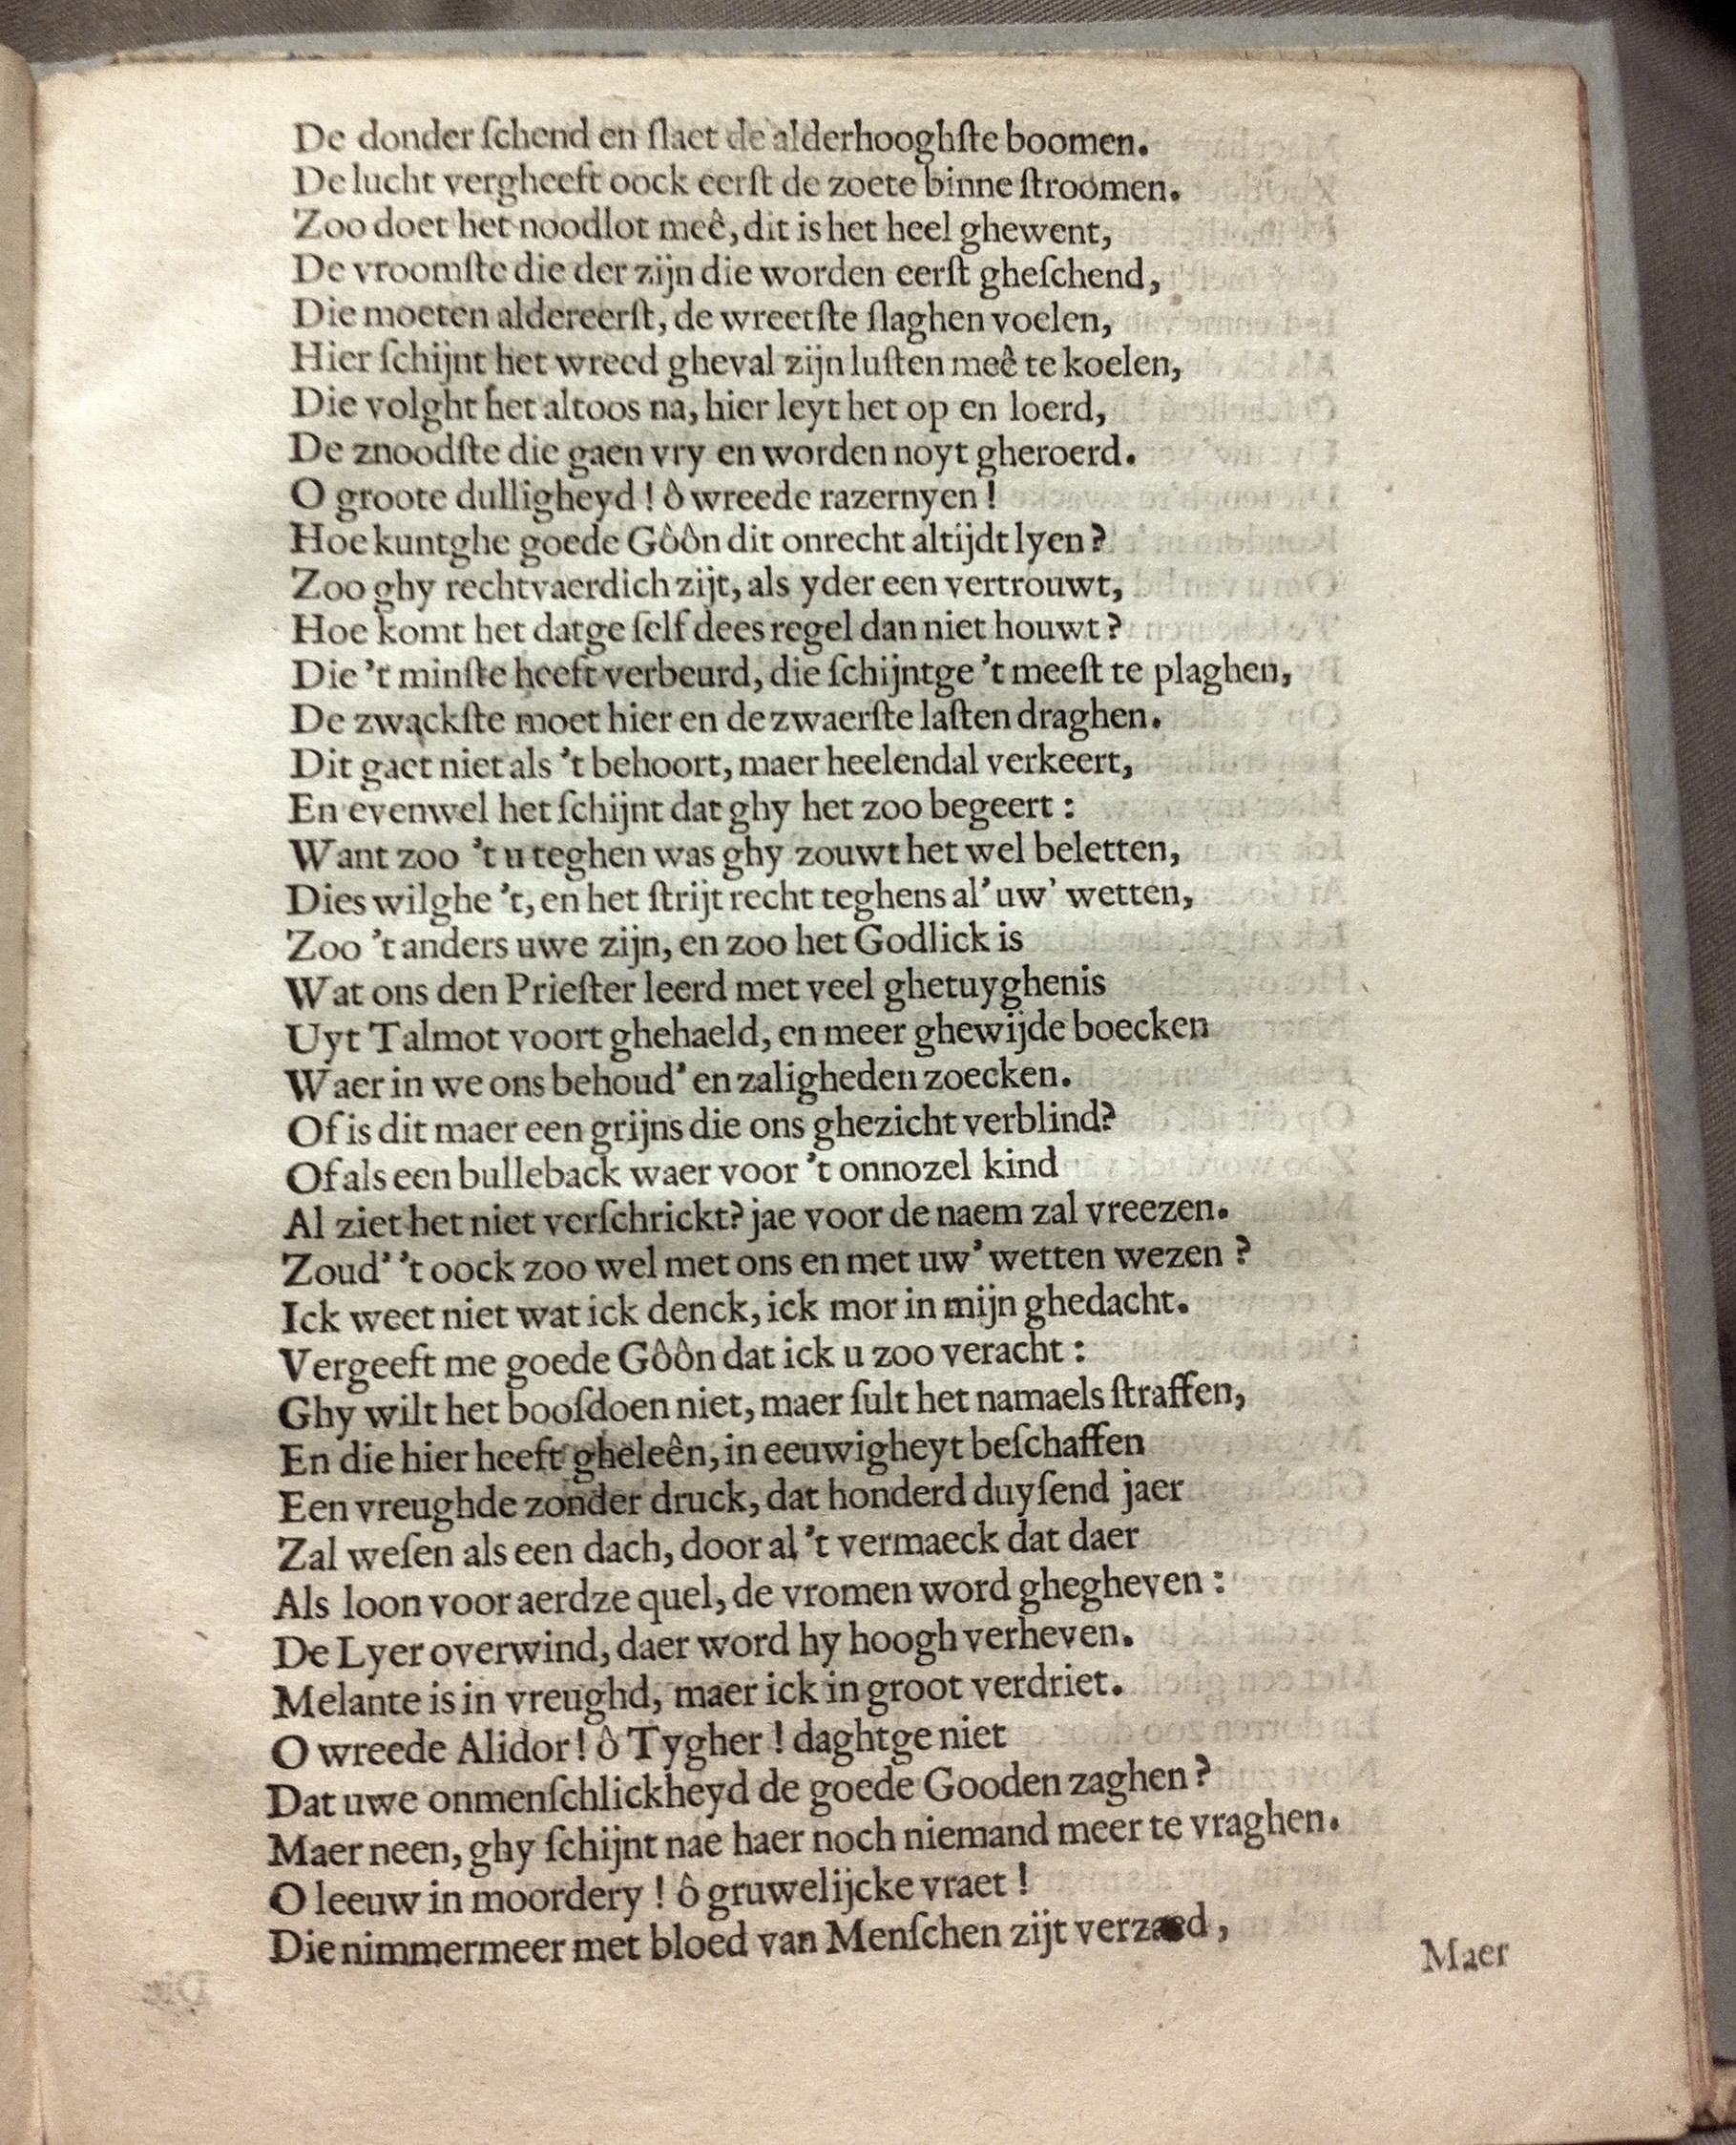 De donder ſchend en ſlaet de alderhooghſte boomen.
De lucht vergheeft oock eerſt de zoete binne ſtroomen.
Zoo doet het noodlot meê, dit is het heel ghewent,
De vroomſte die der zijn die worden eerſt gheſchend,
Die moeten aldereerſt, de wreetſte ſlaghen voelen,
Hier ſchijnt het wreed gheval zijn luſten meê te koelen,
Die volght het altoos na, hier leyt het op en loerd,
De znoodſte die gaen vry en worden noyt gheroerd.
O groote dulligheyd! ô wreede razernyen!
Hoe kuntghe goede Gôôn dit onrecht altijdt lyen?
Zoo ghy rechtvaerdich zijt, als yder een vertrouwt,
Hoe komt het datge ſelf dees regel dan niet houwt?
Die 't minſte heeft verbeurd, die ſchijntge 't meeſt te plaghen,
De zwackſte moet hier en de zwaerſte laſten draghen.
Dit gaet niet als 't behoort, maer heelendal verkeert,
En evenwel het ſchijnt dat ghy het zoo begeert:
Want zoo 't u teghen was ghy zouwt het wel beletten,
Dies wilghe 't, en het ſtrijt recht teghens al' uw' wetten,
Zoo 't anders uwe zijn, en zoo het Godlick is
Wat ons den Prieſter leerd met veel ghetuyghenis
Uyt Talmot voort ghehaeld, en meer ghewijde boecken
Waer in we ons behoud' en zaligheden zoecken.
Of is dit maer een grijns die ons ghezicht verblind?
Of als een bulleback waer voor 't onnozel kind
Al ziet het niet verſchrickt? jae voor de naem zal vreezen.
Zoud' 't oock zoo wel met ons en met uw' wetten wezen?
Ick weet niet wat ick denck, ick mor in mijn ghedacht.
Vergeeft me goede Gôôn dat ick u zoo veracht:
Ghy wilt het boosdoen niet, maer ſult het namaels ſtraffen,
En die hier heeft gheleên, in eeuwigheyt beſchaffen
Een vreughde zonder druck, dat honderd duyſend jaer
Zal weſen als een dach, door al 't vermaeck dat daer
Als loon voor aerdze quel, de vromen word ghegheven:
De Lyer overwind, daer word hy hoogh verheven.
Melante is in vreughd, maer ick in groot verdriet.
O wreede Alidor! ô Tygher! daghtge niet
Dat uwe onmenſchlickheyd de goede Gooden zaghen?
Maer neen, ghy ſchijnt nae haer noch niemand meer te vraghen.
O leeuw in moordery! ô gruwelijcke vraet!
Die nimmermeer met bloed van Menſchen zijt verzaed,
Maer